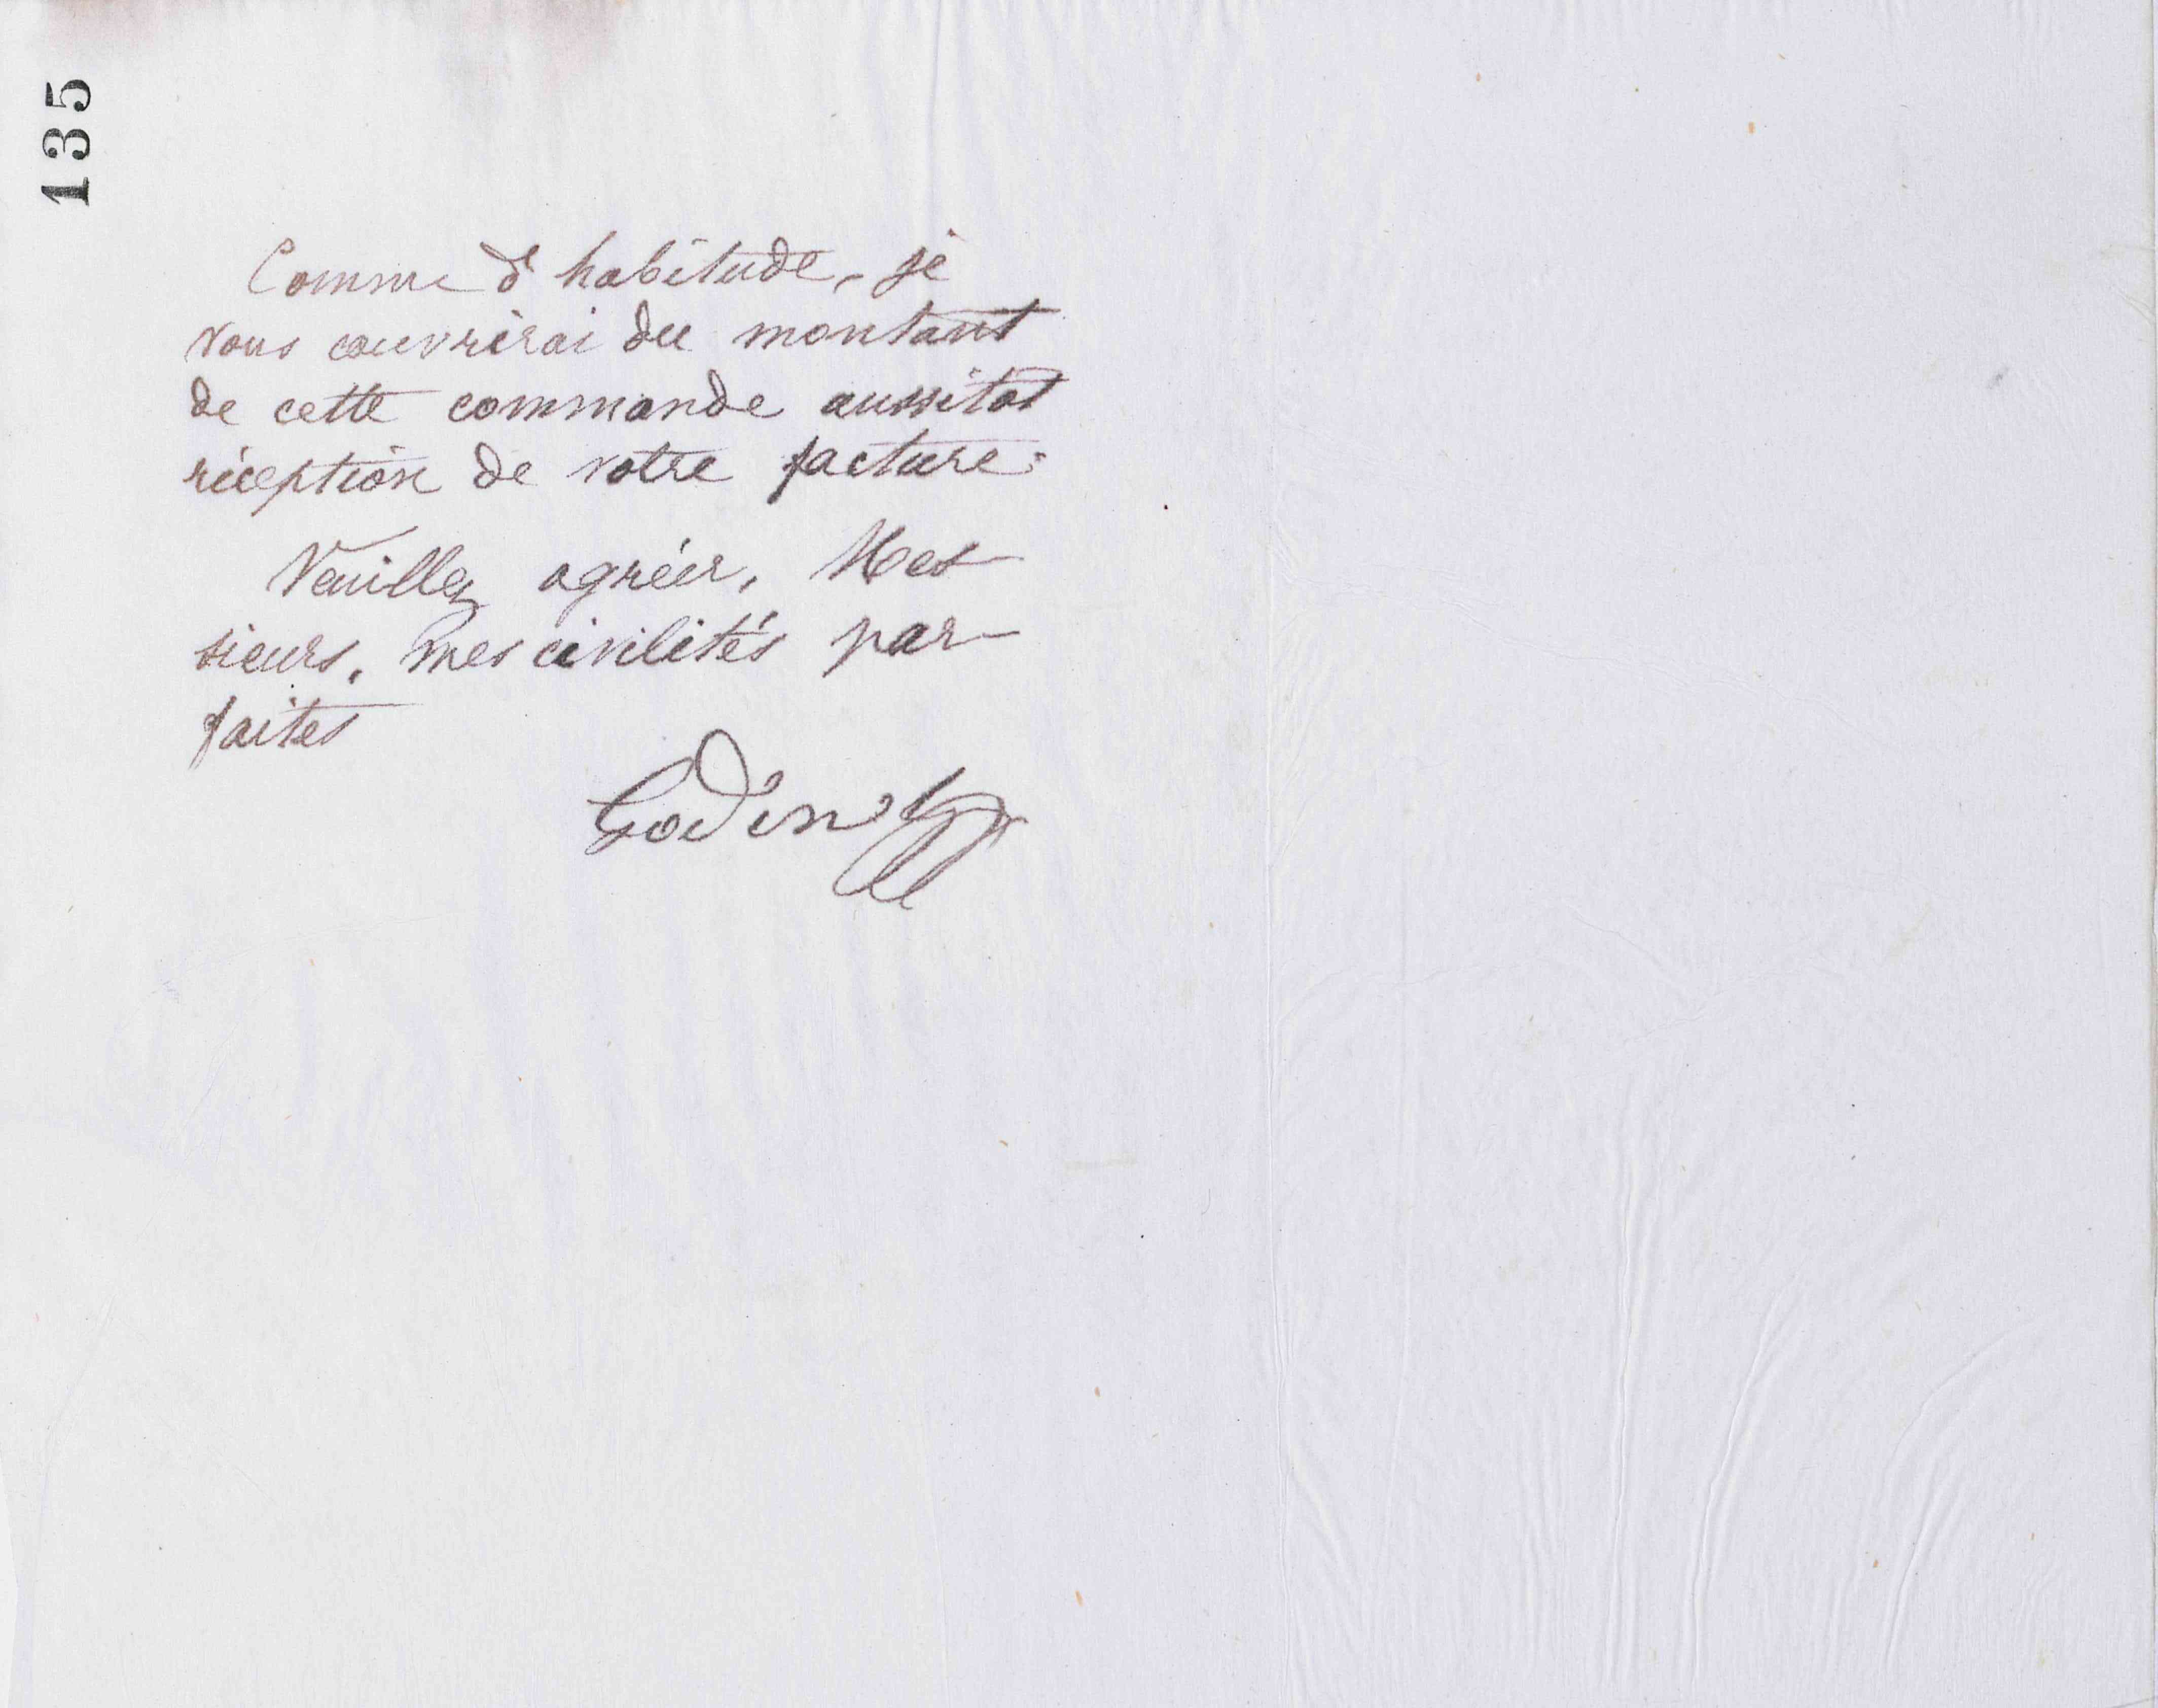 135
Comme d'habitude, je
vous couvrirai du montant
de cette commande aussitot
réception de votre facture.
Veuillez agréer, Mes-
sieurs, mes civilités par-
faites
Godin